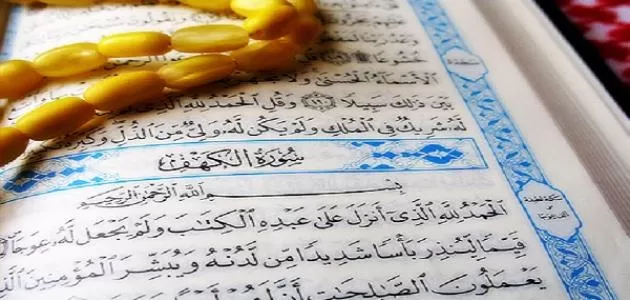 خُشُوعًا ۩ قُلِ
ٱلْأَسْمَآءُ ٱلْحُسْنَىٰ وَلَا
بَيْنَ ذَٰلِكَ سَبِيلًا ١١٠ وَقُلِ ٱلْحَمْدُ لِلَّهِ ٱلَّذِى
لَّهُۥ شَرِيكٌ فِى ٱلْمُلْكِ وَلَمْ يَكُن لَّهُۥ وَلِىٌّ مِّنَ ٱلذُّلِّ وَكَبِّرْهُ
سُورَةُ الكَهْفِ
بِسْمِ ٱللَّهِ ٱلرَّحْمَٰنِ ٱلرَّحِيمِ
ٱلْحَمْدُ لِلَّهِ ٱلَّذِىٓ أَنزَلَ عَلَىٰ عَبْدِهِ ٱلْكِتَٰبَ وَلَمْ يَجْعَل لَّهُۥ عِوَجَا
قَيِّمًا لِّيُنذِرَ بَأْسًا شَدِيدًا مِّن لَّدُنْهُ وَيُبَشِّرَ ٱلْمُؤْمِنِينَ ٱلَّذِينَ
يَعْمَلُونَ ٱلصَّٰلِحَٰتِ أَنَّ لَهُمْ